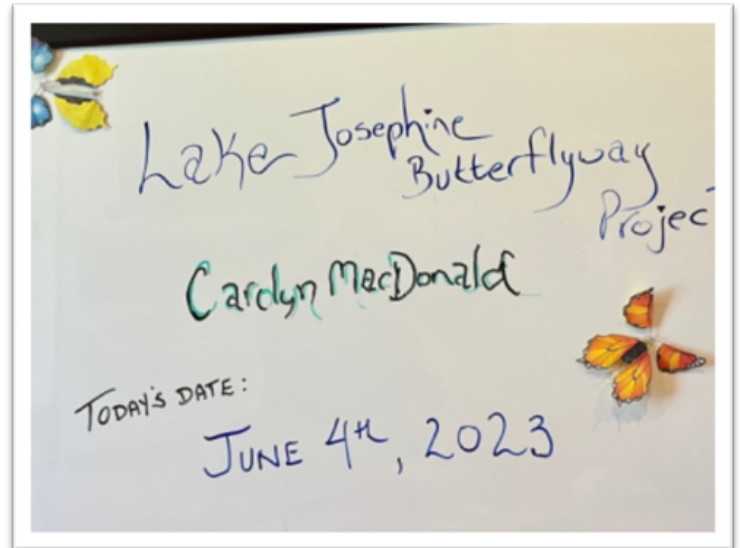 Lake Josephine
Butterflyway
Projec
Carolyn MacDonald
TODAY'S DATE:
JUNE 4th, 2023